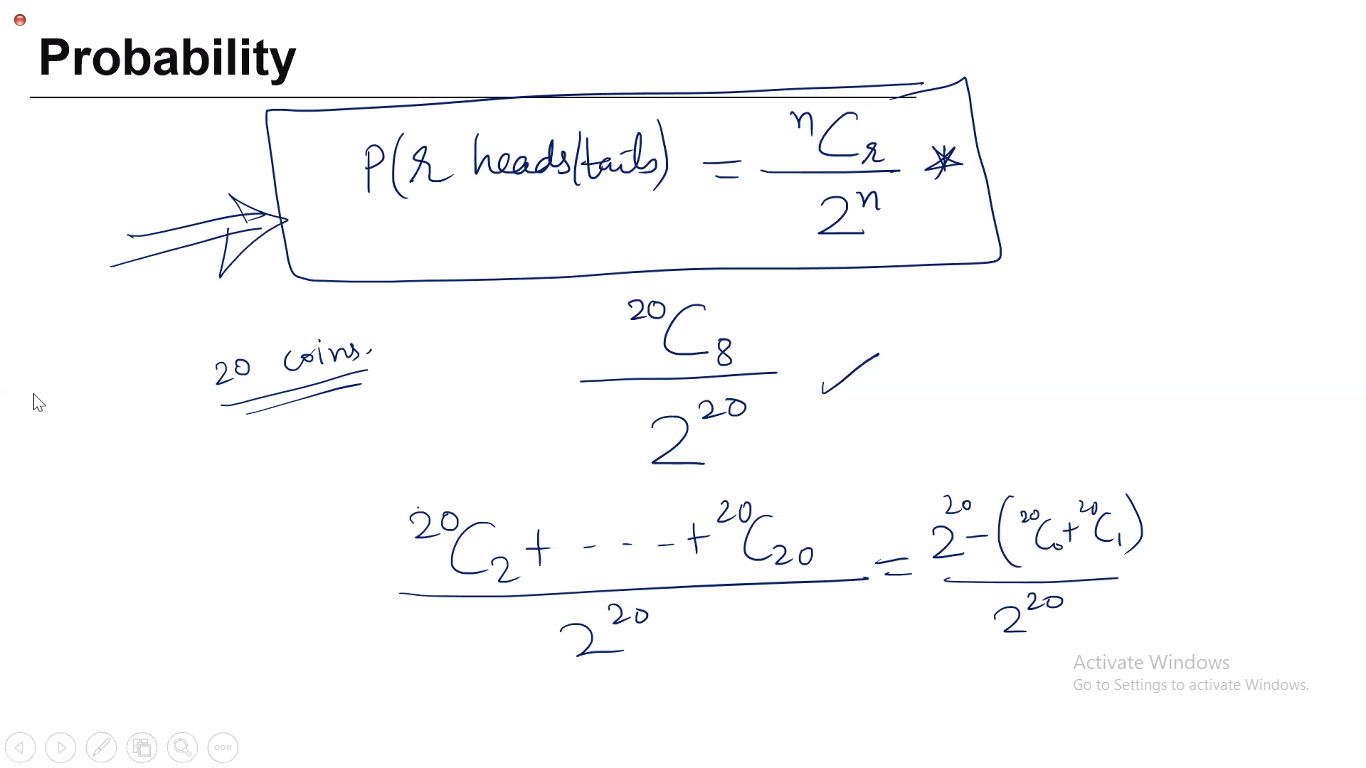 Probability
P(r heads/tails) = ⁿCᵣ / 2ⁿ *
20 coins.
²⁰C₈ / 2²⁰ ✓
(²⁰C₂ + - - - + ²⁰C₂₀) / 2²⁰ = (2²⁰ - (²⁰C₀ + ²⁰C₁)) / 2²⁰
Activate Windows
Go to Settings to activate Windows.